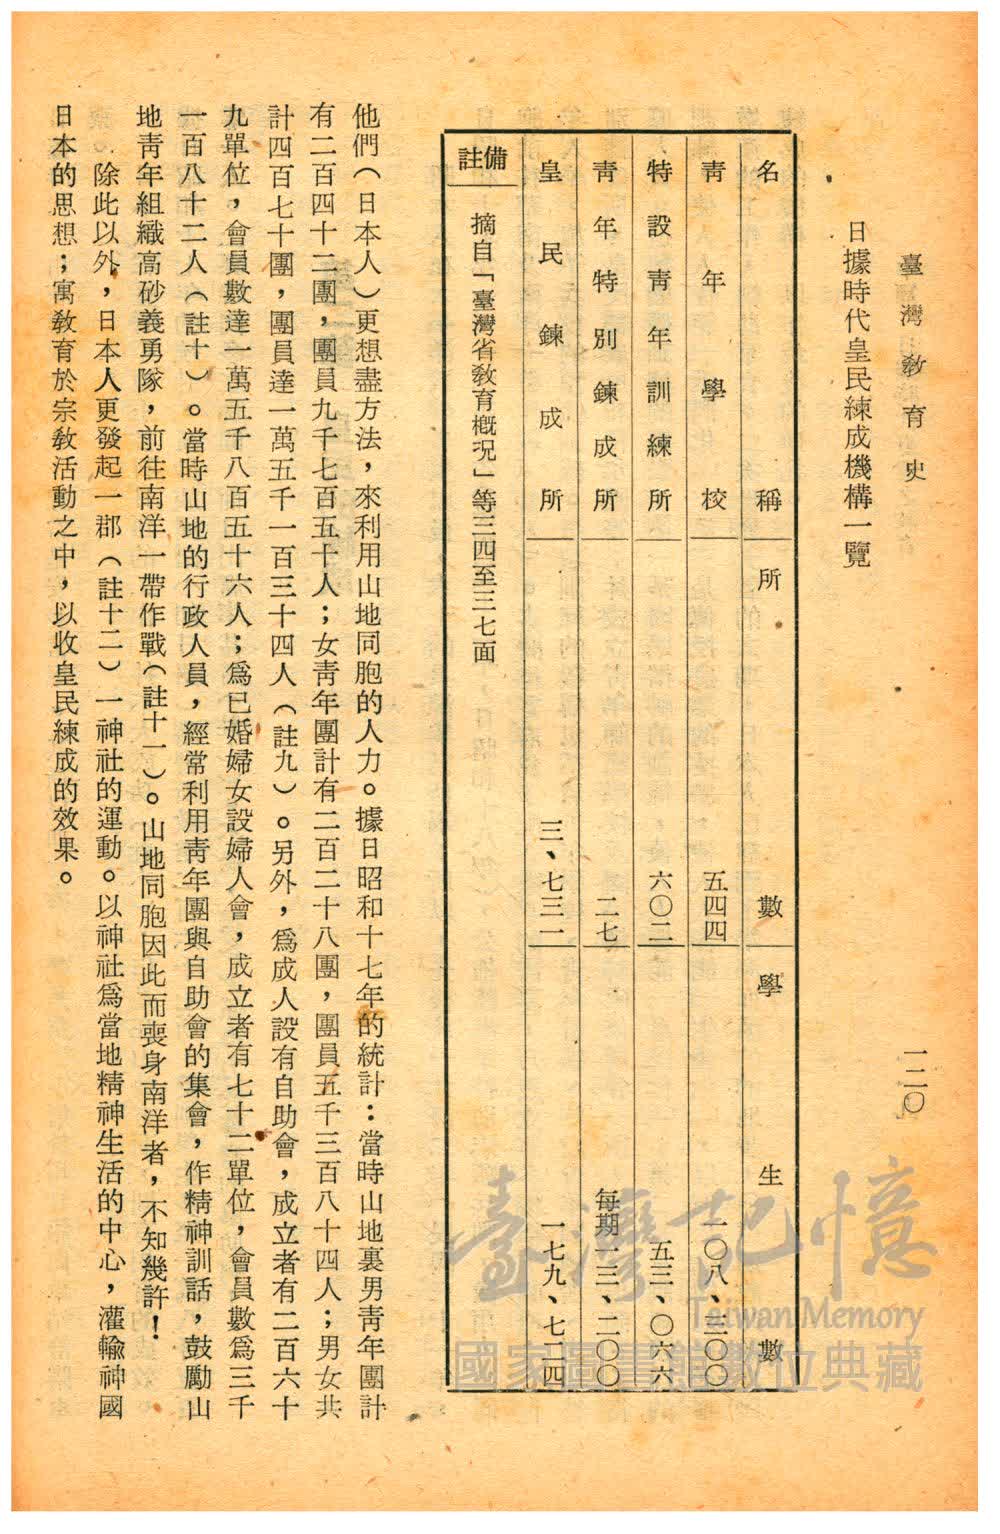 臺灣教育史
一二〇
日據時代皇民練成機構一覽
名稱 所數 學生數
青年學校 五四四 一〇八、三〇〇
特設青年訓練所 六〇二 五三、〇六六
青年特別鍊成所 二七 每期一三、二〇〇
皇民鍊成所 三、七三一 一七九、七二四
備註 摘自「臺灣省敎育概況」等三四至三七面
他們（日本人）更想盡方法，來利用山地同胞的人力。據日昭和十七年的統計：當時山地裏男青年團計
有二百四十二團，團員九千七百五十人；女青年團計有二百二十八團，團員五千三百八十四人；男女共
計四百七十團，團員達一萬五千一百三十四人（註九）。另外，爲成人設有自助會，成立者有二百六十
九單位，會員數達一萬五千八百五十六人；爲已婚婦女設婦人會，成立者有七十二單位，會員數爲三千
一百八十二人（註十）。當時山地的行政人員，經常利用青年團與自助會的集會，作精神訓話，鼓勵山
地青年組織高砂義勇隊，前往南洋一帶作戰（註十一）。山地同胞因此而喪身南洋者，不知幾許！
除此以外，日本人更發起一郡（註十二）一神社的運動。以神社爲當地精神生活的中心，灌輸神國
日本的思想；寓敎育於宗敎活動之中，以收皇民練成的效果。
臺灣記憶
Taiwan Memory
國家圖書館數位典藏